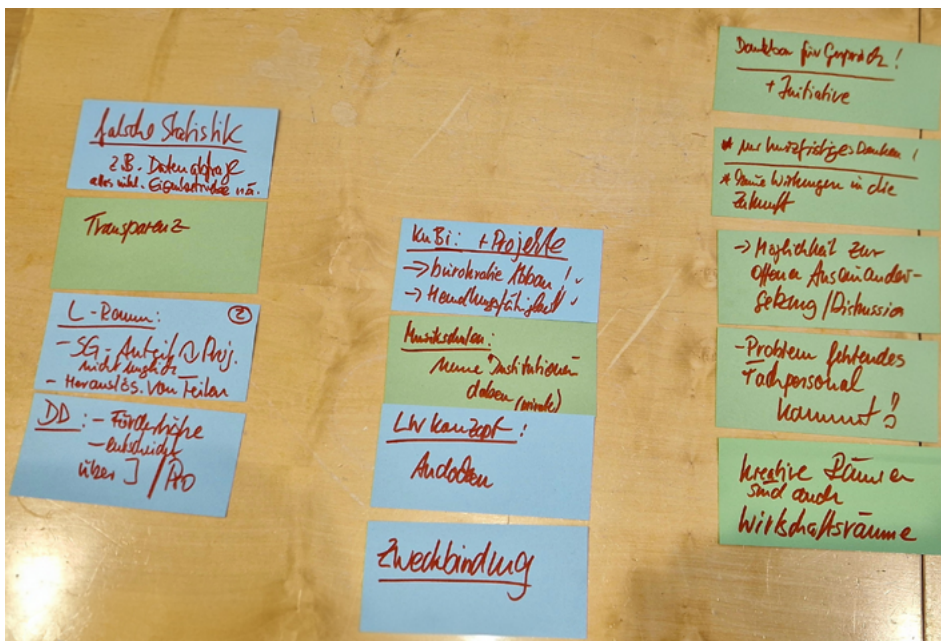 falsche Statistik
z.B. Datenabfrage
alles inkl. Eigenbetriebe u.ä.
Transparenz
L-Raum: ②
- SG. Anteil Proj.
nicht möglich
- Herauslös. von Teilen
DD: - Förderhöhe
- entscheidet
über I / Pro
KuBi: + Projekte
→ bürokratie Abbau!
→ Handlungsfähigkeit
Musikschulen:
Institutionen
LW Konzept:
Andocken
Zweckbindung
Dankbar für Gespräch!
+ Initiative
* nur kurzfristiges Denken!
* Wirkungen in die
Zukunft
→ Möglichkeit zur
offenen Auseinander-
setzung / Diskussion
- Problem fehlendes
Fachpersonal
kommt!
kreative Räume
sind auch
Wirtschaftsräume